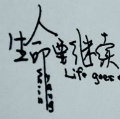 生命要继续
Life goes o